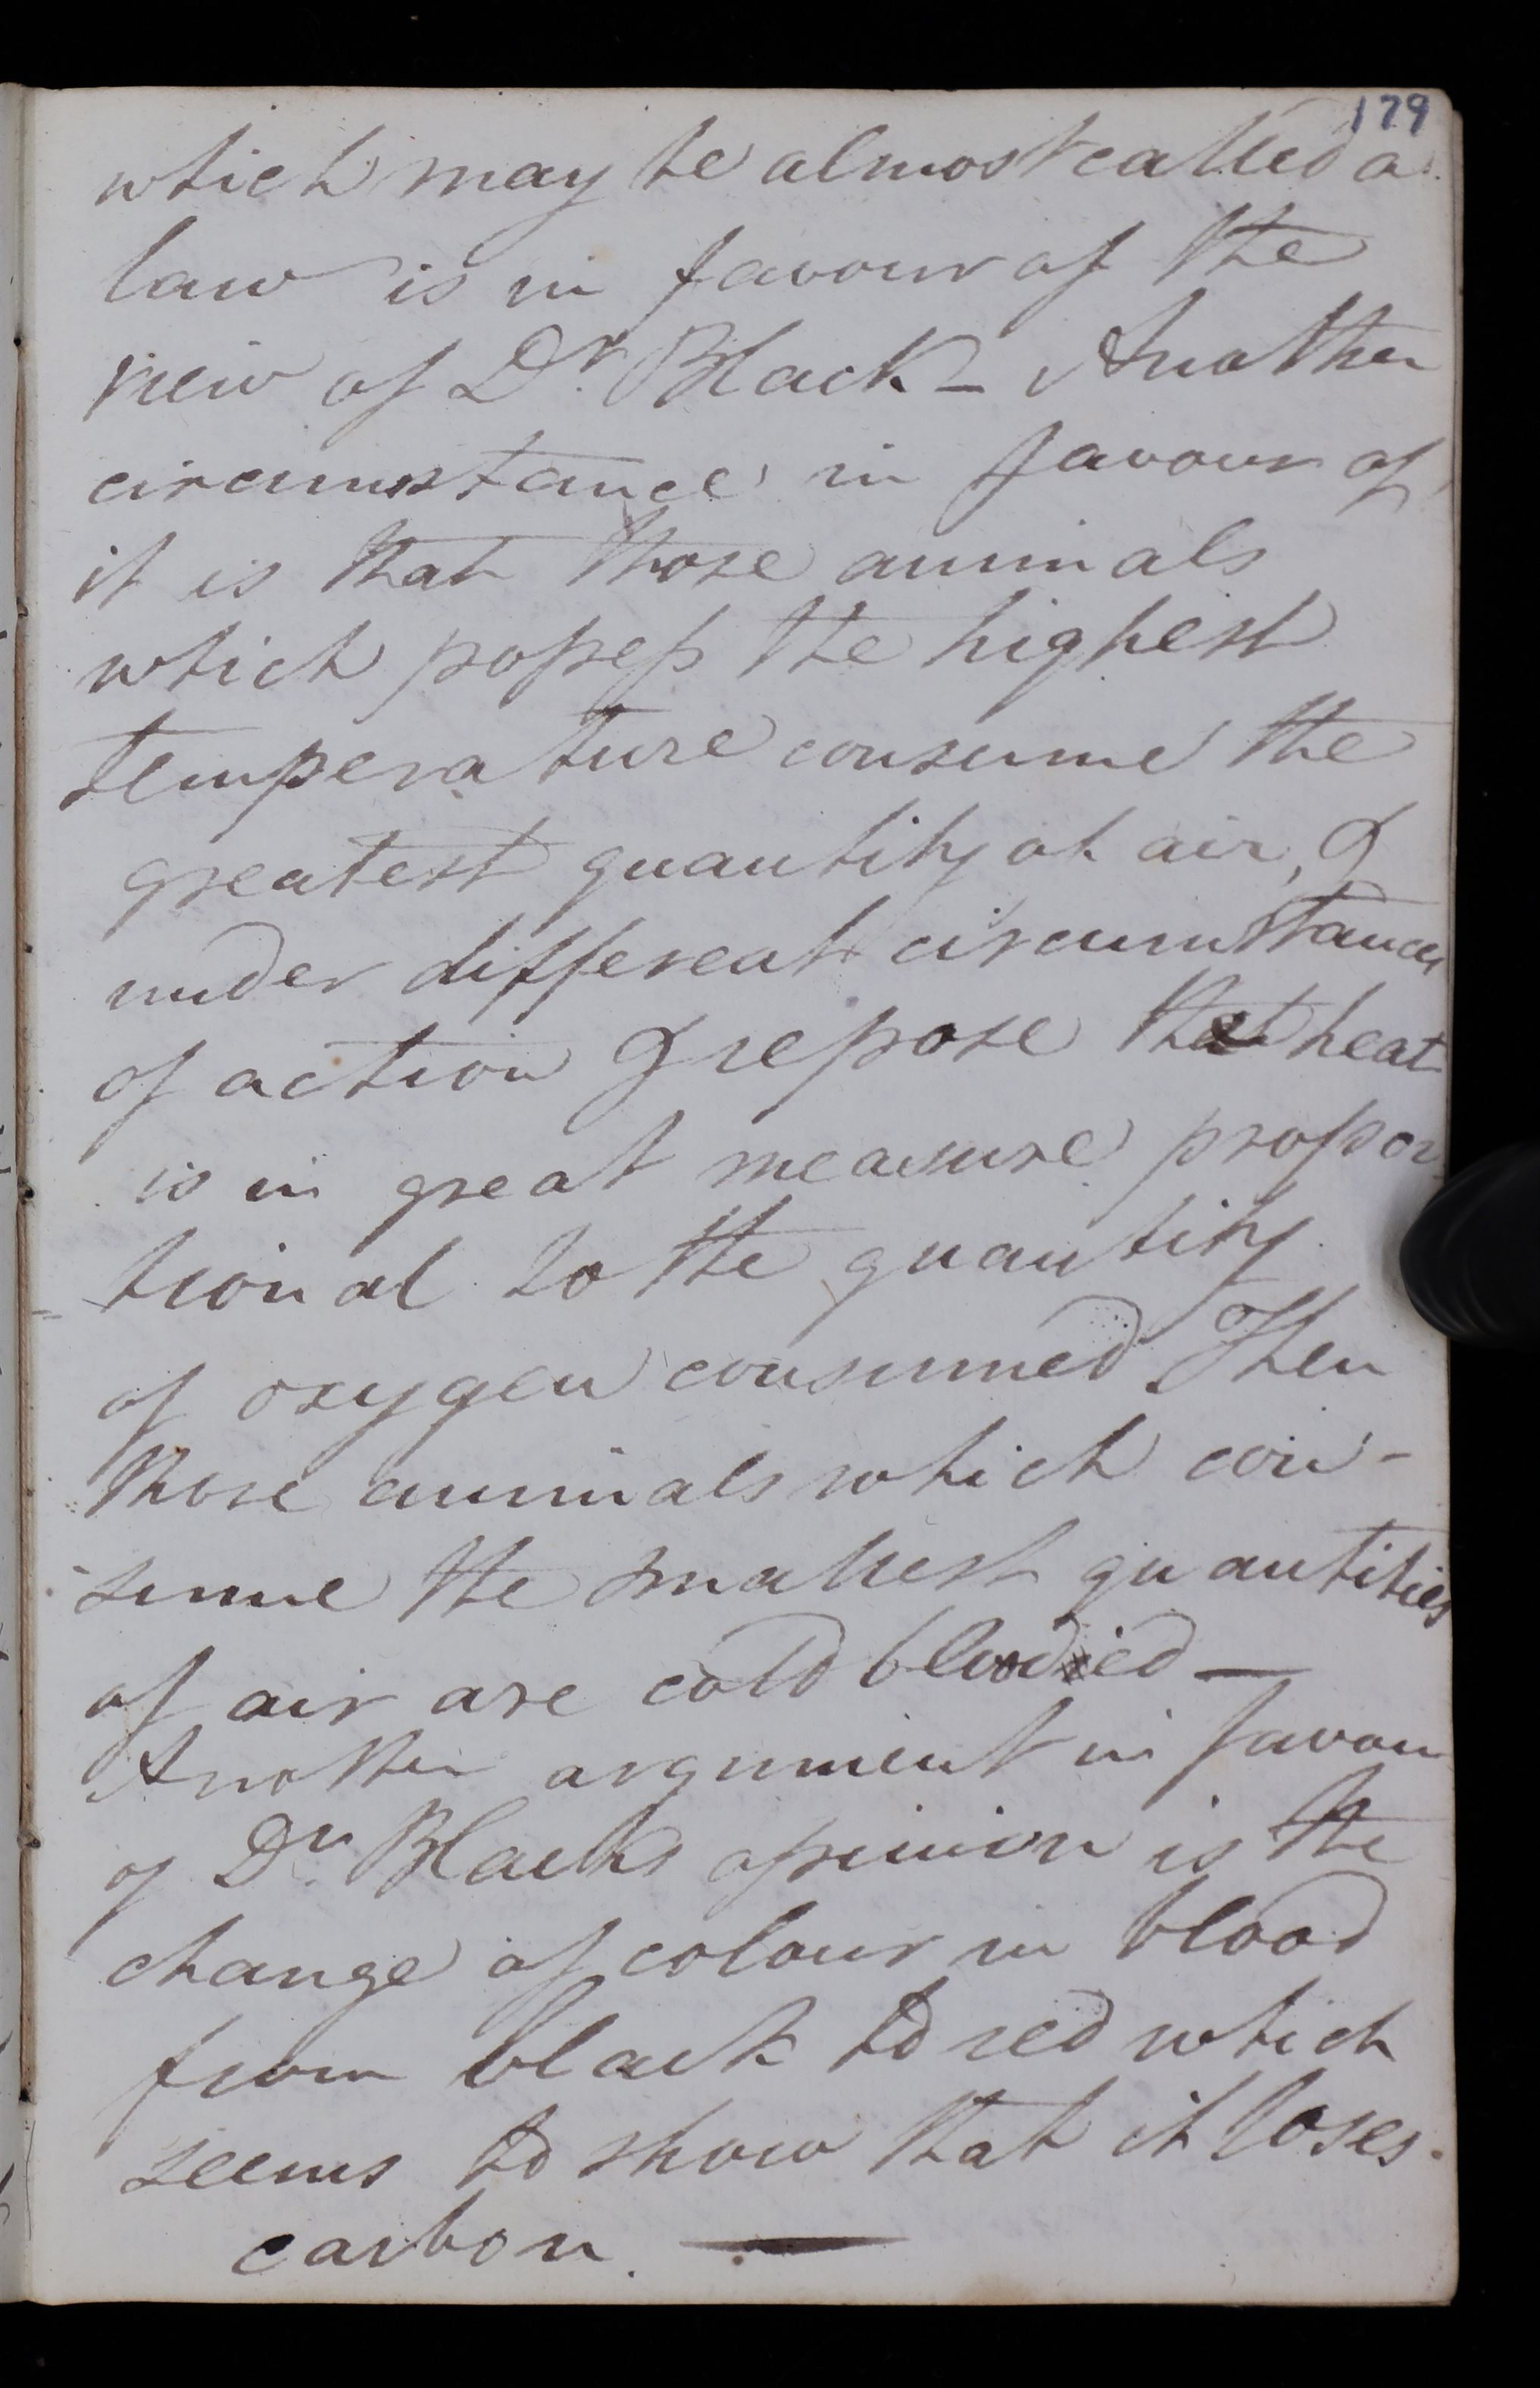 179
which may be almost called a
law is in favour of the
view of Dr. Black - Another
circumstance in favour of
it is that those animals
which possess the highest
temperature consume the
greatest quantity of air, &
under different circumstances
of action & repose that heat
is in great measure propor
tional to the quantity
of oxygen consumed. Then
those animals which con-
sume the smallest quantities
of air are cold blooded —
Another argument in favour
of Dr. Blacks opinion is the
change of colour in blood
from black to red which
seems to show that it loses
carbon. —